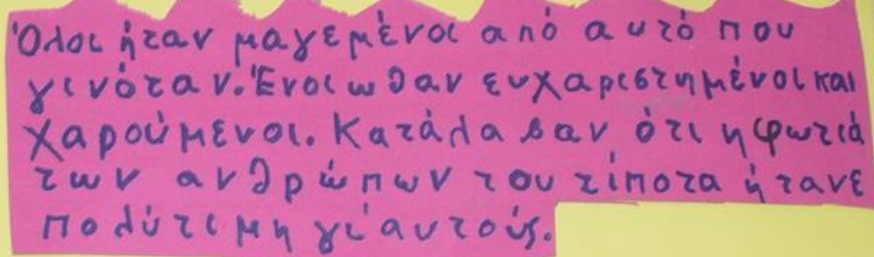 Όλοι ήταν μαγεμένοι από αυτό που
γινόταν. Ένοιωθαν ευχαριστημένοι και
χαρούμενοι. Κατάλαβαν ότι η φωτιά
των ανθρώπων του τίποτα ήτανε
πολύτιμη γι' αυτούς.